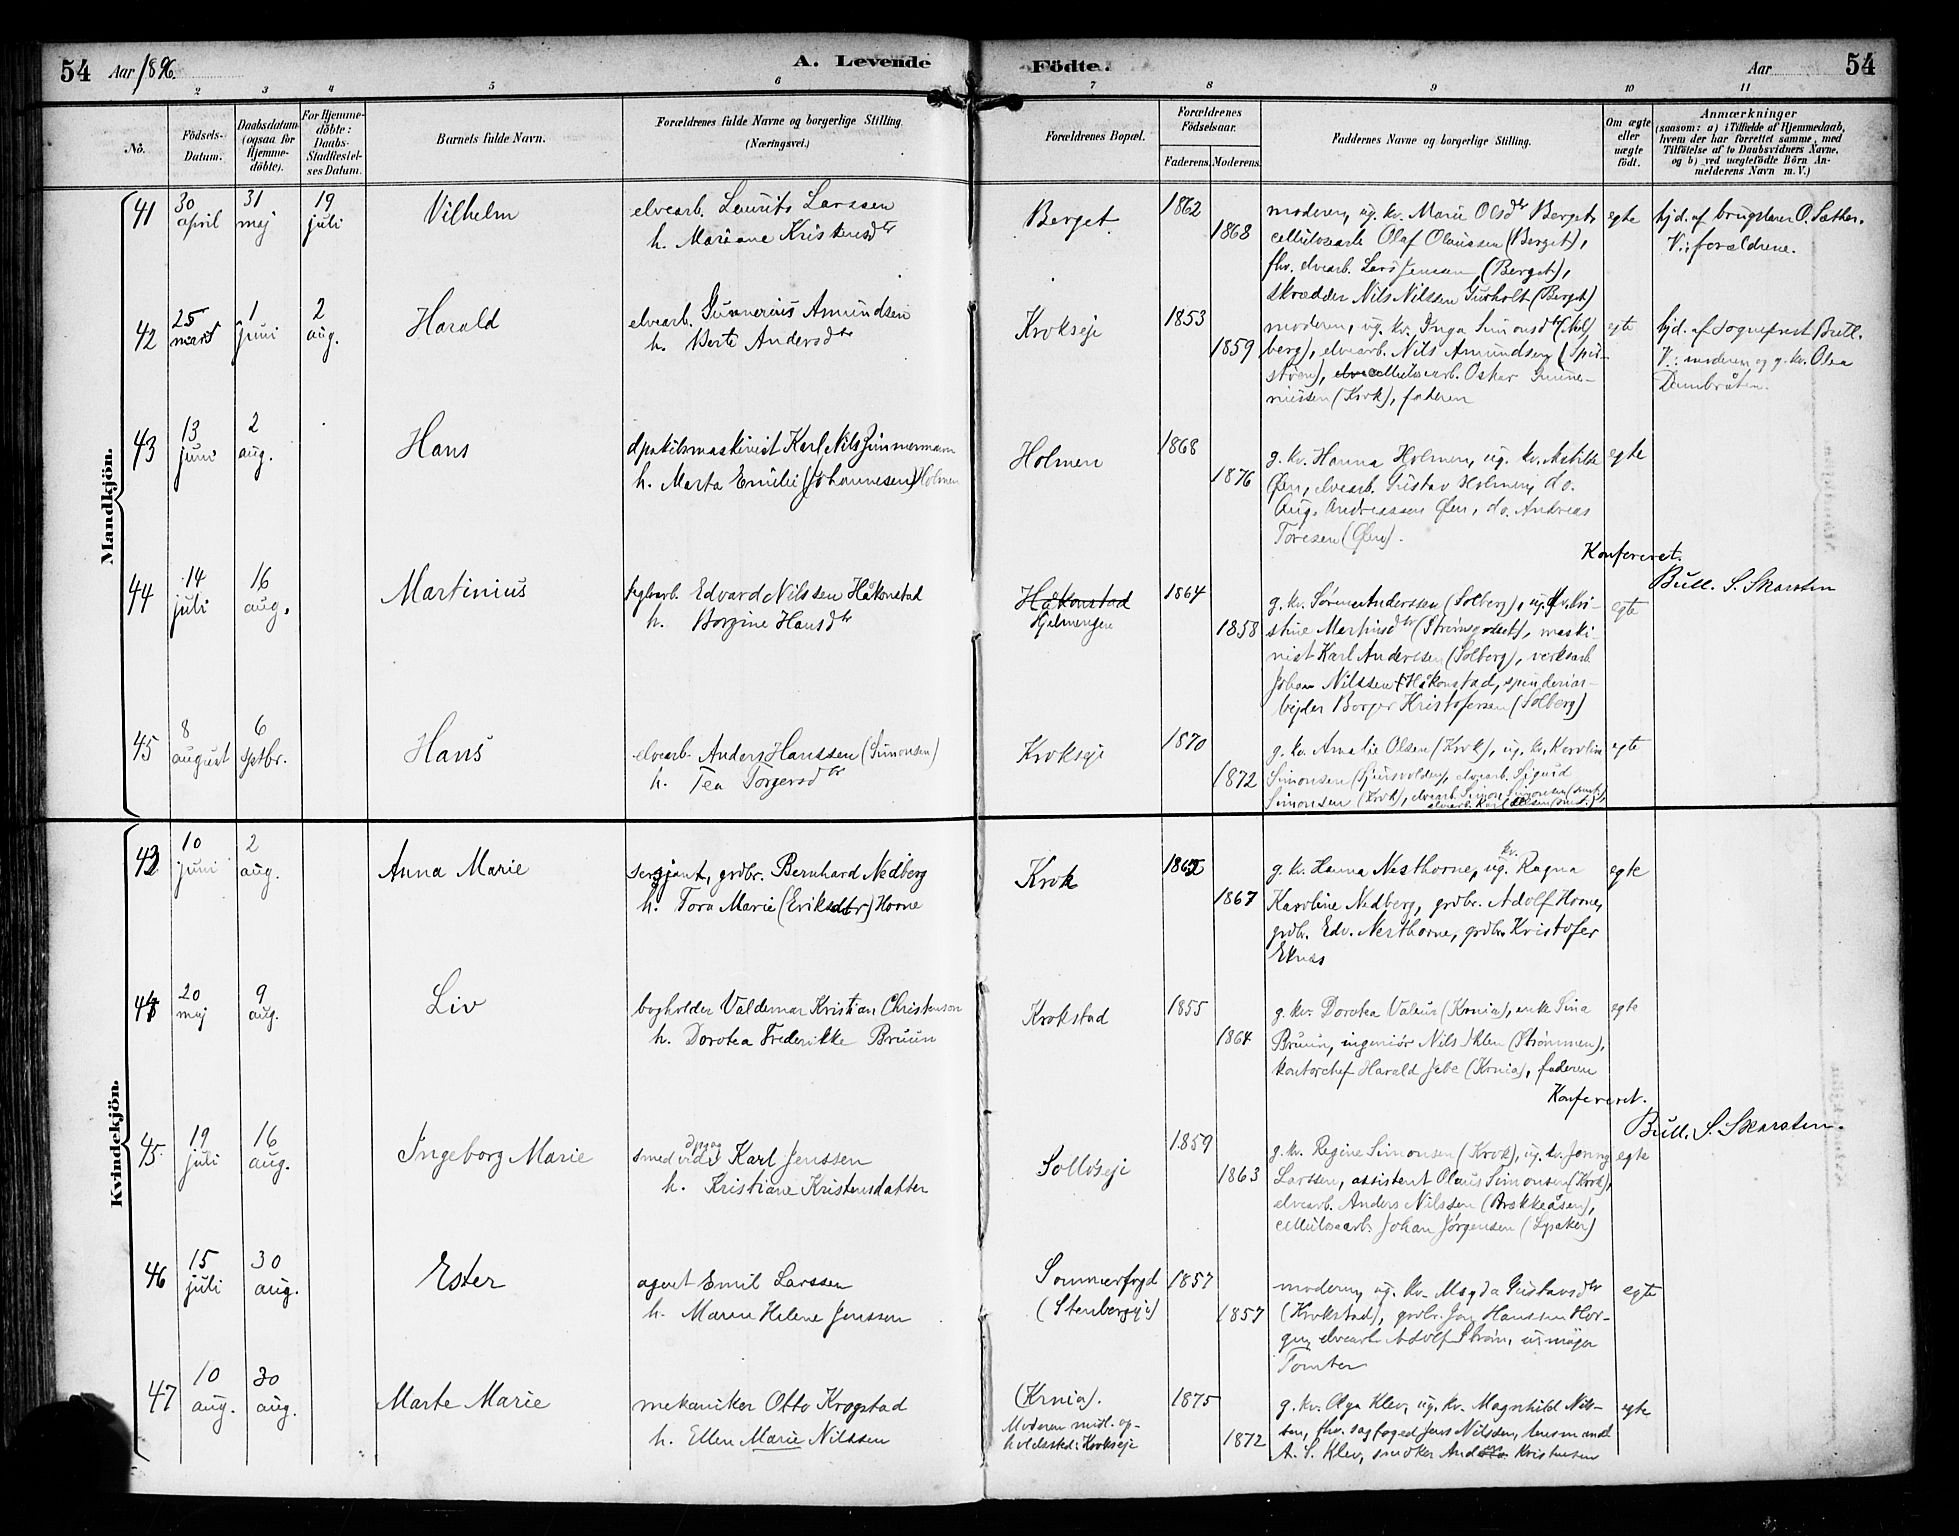 54 Aar 1896
A. Levende Födte.
Aar 54
2 3 4 5 6 7 8 9 10 11
No.
Födsels-Datum.
Daabsdatum (ogsaa for Hjemme-döbte).
For Hjemme-döbte: Daabs-Stadfæstel-ses Datum.
Barnets fulde Navn.
Forældrenes fulde Navne og borgerlige Stilling.
(Næringsvei.)
Forældrenes Bopæl.
Forældrenes Födselsaar.
Faderens. Moderens.
Faddernes Navne og borgerlige Stilling.
Om ægte eller uægte födt.
Anmærkninger
(saasom: a) i Tilfælde af Hjemmedaab,
hvem der har forrettet samme, med
Tilföielse af to Daabsvidners Navne,
og b) ved uægtefödte Börn An-
melderens Navn m. V.)
Mandkjön.
41 30 april 31 maj 19 juli Vilhelm
elvearb. Laurits Larssen
h. Mariane Kristensdtr
Berget. 1862 1868
moderen, ug. kv. Marie Olsdtr Berget,
cellulosearb. Olaf Olaussen (Berget),
fhv. elvearb. Lars Jenssen (Berget),
skrædder Nils Nilssen Gurholt (Berget)
egte
hjd. af brugslærer O. Sæther.
V.: forældrene.
42 25 mars 1 juni 2 aug. Harald
elvearb. Gunnerius Amundsen
h. Berte Andersdtr
Krokseje 1853 1859
moderen, ug. kv. Inga Simonsdtr (Sol-
berg), elvearb. Nils Amundsen
cellulosearb. Oskar Gunne-
riussen (Krok), faderen
egte
hjd. af sogneprest Bull.
V.: moderen og g. kv. Olea
Dambråten.
43 13 juni 2 aug. Hans
dpskibsmaskinist Karl Nils Zimmermann
h. Marta Emilie (Johannesen) Holmen
Holmen 1868 1876
g. kv. Hanna Holmen, ug. kv. Mathilde
Øen, elvearb. Gustav Holmen, do.
Aug. Andreassen Øen, do. Andreas
Toresen (Øen).
egte
Konfereret.
Bull. S. Skarsten
44 14 juli 16 aug. Martinius
teglarb. Edvard Nilssen Håkonstad
h. Borgine Hansdtr
Håkonstad
Hjelmengen
1864 1858
g. kv. Sørine Anderssen (Solberg), ug. kv. Kri-
stine Martinsdtr (Strømsgodset), maski-
nist Karl Anderssen (Solberg), verksarb.
Johan Nilssen Håkonstad, spinneriar-
bejder Borger Kristofersen (Solberg)
egte
45 8 august 6 sptbr. Hans
elvearb. Anders Hanssen (Simonsen)
h. Tea Torgersdtr
Krokseje 1870 1872
g. kv. Amalie Olsen (Krok), ug. kv. Karoline
Simonsen, elvearb. Sigurd
Simonsen (Krok), elvearb. Simon Simonsen
elvearb. Karl Olsen
egte
Kvindekjön.
43 10 juni 2 aug. Anna Marie
sersjant, grdbr. Bernhard Nedberg
h. Tora Marie (Eriksdtr) Horne
Krok 1867
g. kv. Hanna Nesthorne, ug. kv. Ragna
Karoline Nedberg, grdbr. Adolf Horne,
grdbr. Edv. Nesthorne, grdbr. Kristofer
Eknes
egte
44 20 maj 9 aug. Liv
bogholder Valdemar Kristian Christenson
h. Dorotea Frederikke Bruun
Krokstad 1855 1864
g. kv. Dorotea Valeur (Krnia), enke Sina
Bruun, ingeniør Nils Ihlen (Strømmen),
kontorchef Harald Jebe (Krnia), faderen
egte
Konfereret.
Bull. S. Skarsten.
45 19 juli 16 aug. Ingeborg Marie
smed Karl Jenssen
h. Kristiane Kristensdatter
Solløseje 1859 1863
g. kv. Regine Simonsen (Krok), ug. kv. Jenny
Larssen, assistent Olaus Simonsen (Krok),
elvearb. Anders Nilssen (Brækkeåsen),
cellulosearb. Johan Jørgensen (Lysaker)
egte
46 15 juli 30 aug. Ester
agent Emil Larssen
h. Maren Helene Jenssen
Sommerfryd
(Stenbergeje)
1857 1857
moderen, ug. kv. Magda Gustavsdtr
(Krokstad), grdbr. Jon Hanssen Hor-
gen, elvearb. Adolf Strøm, urmager
Tomter
egte
47 10 aug. 30 aug. Marte Marie
mekaniker Otto Krogstad
h. Ellen Marie Nilssen
(Krnia).
Moderen midl. op-
holdssted: Krokseje
1875 1872
g. kv. Aga Klev, ug. kv. Magnhild Nils-
sen, fhv. sagfoged Jens Nilssen, lensmand
A. S. Klev, snedker And. Kristensen
egte